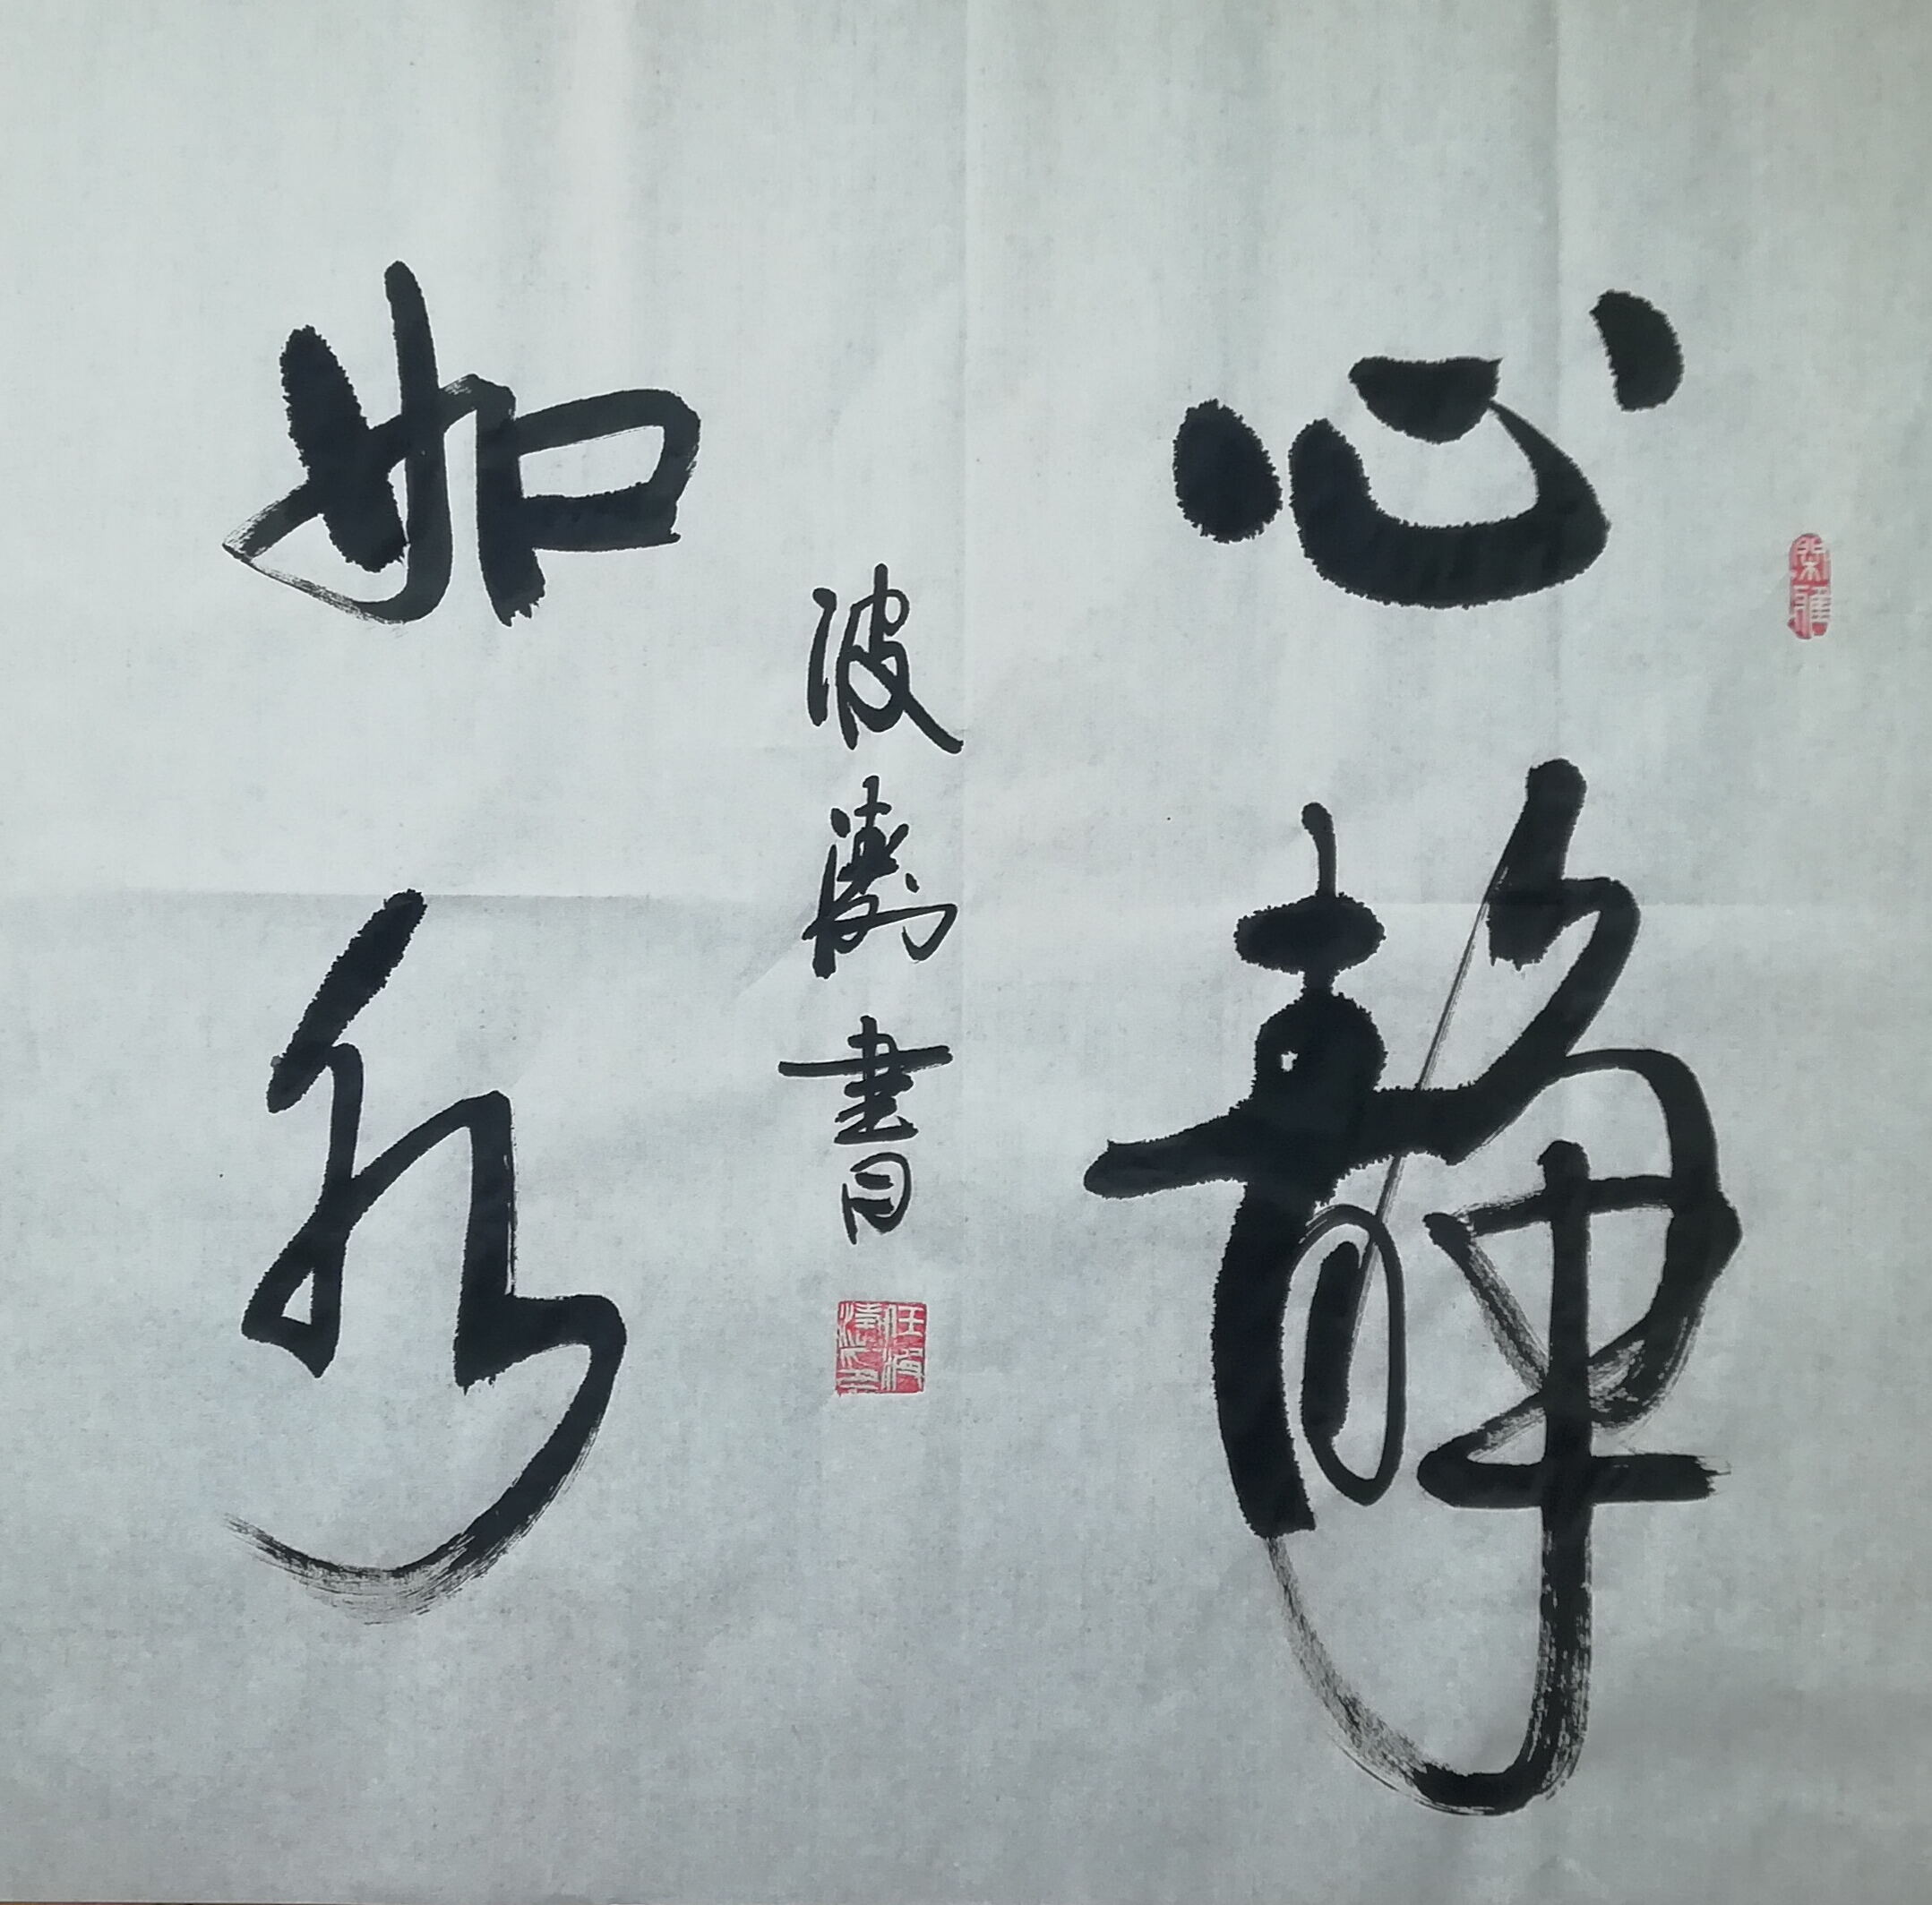 心静
如水
波濤書